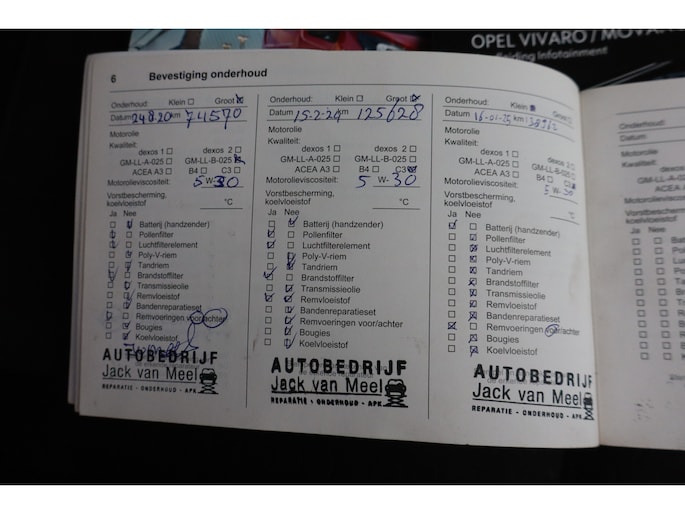 OPEL VIVARO / MOVA
iding Infotainment
6 Bevestiging onderhoud
Onderhoud: Klein Groot
Datum 24 8 20 km 74570
Motorolie
Kwaliteit:
dexos 1 dexos 2
GM-LL-A-025 GM-LL-B-025
ACEA A3 B4 C3
Motorolieviscositeit: 5 W- 30
Vorstbescherming,
koelvloeistof °C
Ja Nee
Batterij (handzender)
Pollenfilter
Luchtfilterelement
Poly-V-riem
Tandriem
Brandstoffilter
Transmissieolie
Remvloeistof
Bandenreparatieset
Remvoeringen voor/achter
Bougies
Koelvloeistof
AUTOBEDRIJF
Jack van Meel
REPARATIE - ONDERHOUD - APK
Onderhoud: Klein Groot
Datum 15-2-24 km 125628
Motorolie
Kwaliteit:
dexos 1 dexos 2
GM-LL-A-025 GM-LL-B-025
ACEA A3 B4 C3
Motorolieviscositeit: 5 W- 30
Vorstbescherming,
koelvloeistof °C
Ja Nee
Batterij (handzender)
Pollenfilter
Luchtfilterelement
Poly-V-riem
Tandriem
Brandstoffilter
Transmissieolie
Remvloeistof
Bandenreparatieset
Remvoeringen voor/achter
Bougies
Koelvloeistof
AUTOBEDRIJF
Jack van Meel
REPARATIE - ONDERHOUD - APK
Onderhoud: Klein Groot
Datum 16-01-25 km
Motorolie
Kwaliteit:
dexos 1 dexos 2
GM-LL-A-025 GM-LL-B-025
ACEA A3 B4 C3
Motorolieviscositeit: 5 W- 30
Vorstbescherming,
koelvloeistof °C
Ja Nee
Batterij (handzender)
Pollenfilter
Luchtfilterelement
Poly-V-riem
Tandriem
Brandstoffilter
Transmissieolie
Remvloeistof
Bandenreparatieset
Remvoeringen voor/achter
Bougies
Koelvloeistof
AUTOBEDRIJF
Jack van Meel
REPARATIE - ONDERHOUD - APK
Onderhoud:
Datum:
Motorolie
Kwaliteit:
dexos 1
GM-LL-A-025
ACEA A3
Motorolieviscositeit:
Vorstbescherming,
koelvloeistof
Ja Nee